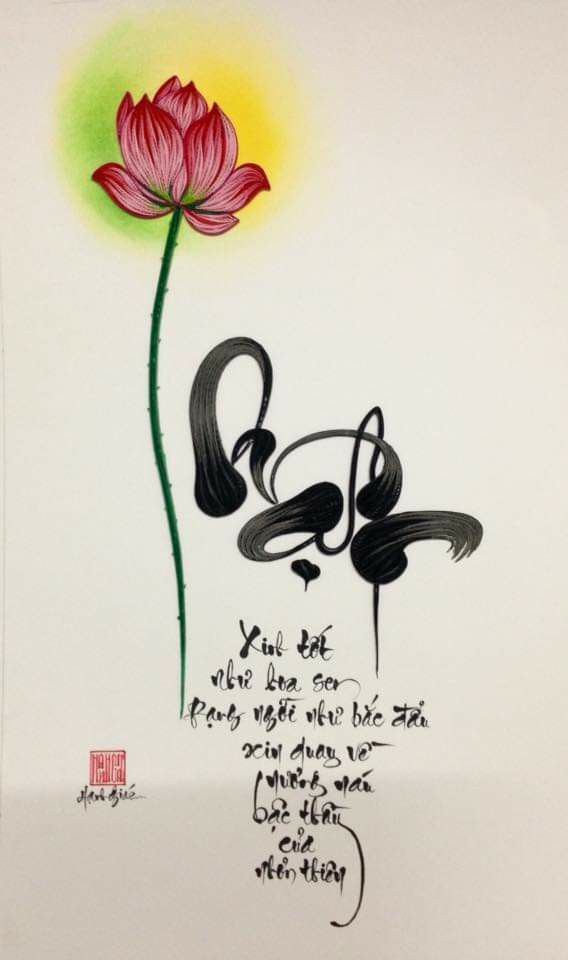 Phật
Xinh tốt
như hoa sen
Rạng ngời như bắc đẩu
xin quay về
nương náu
bậc thầy
của
nhơn thiên